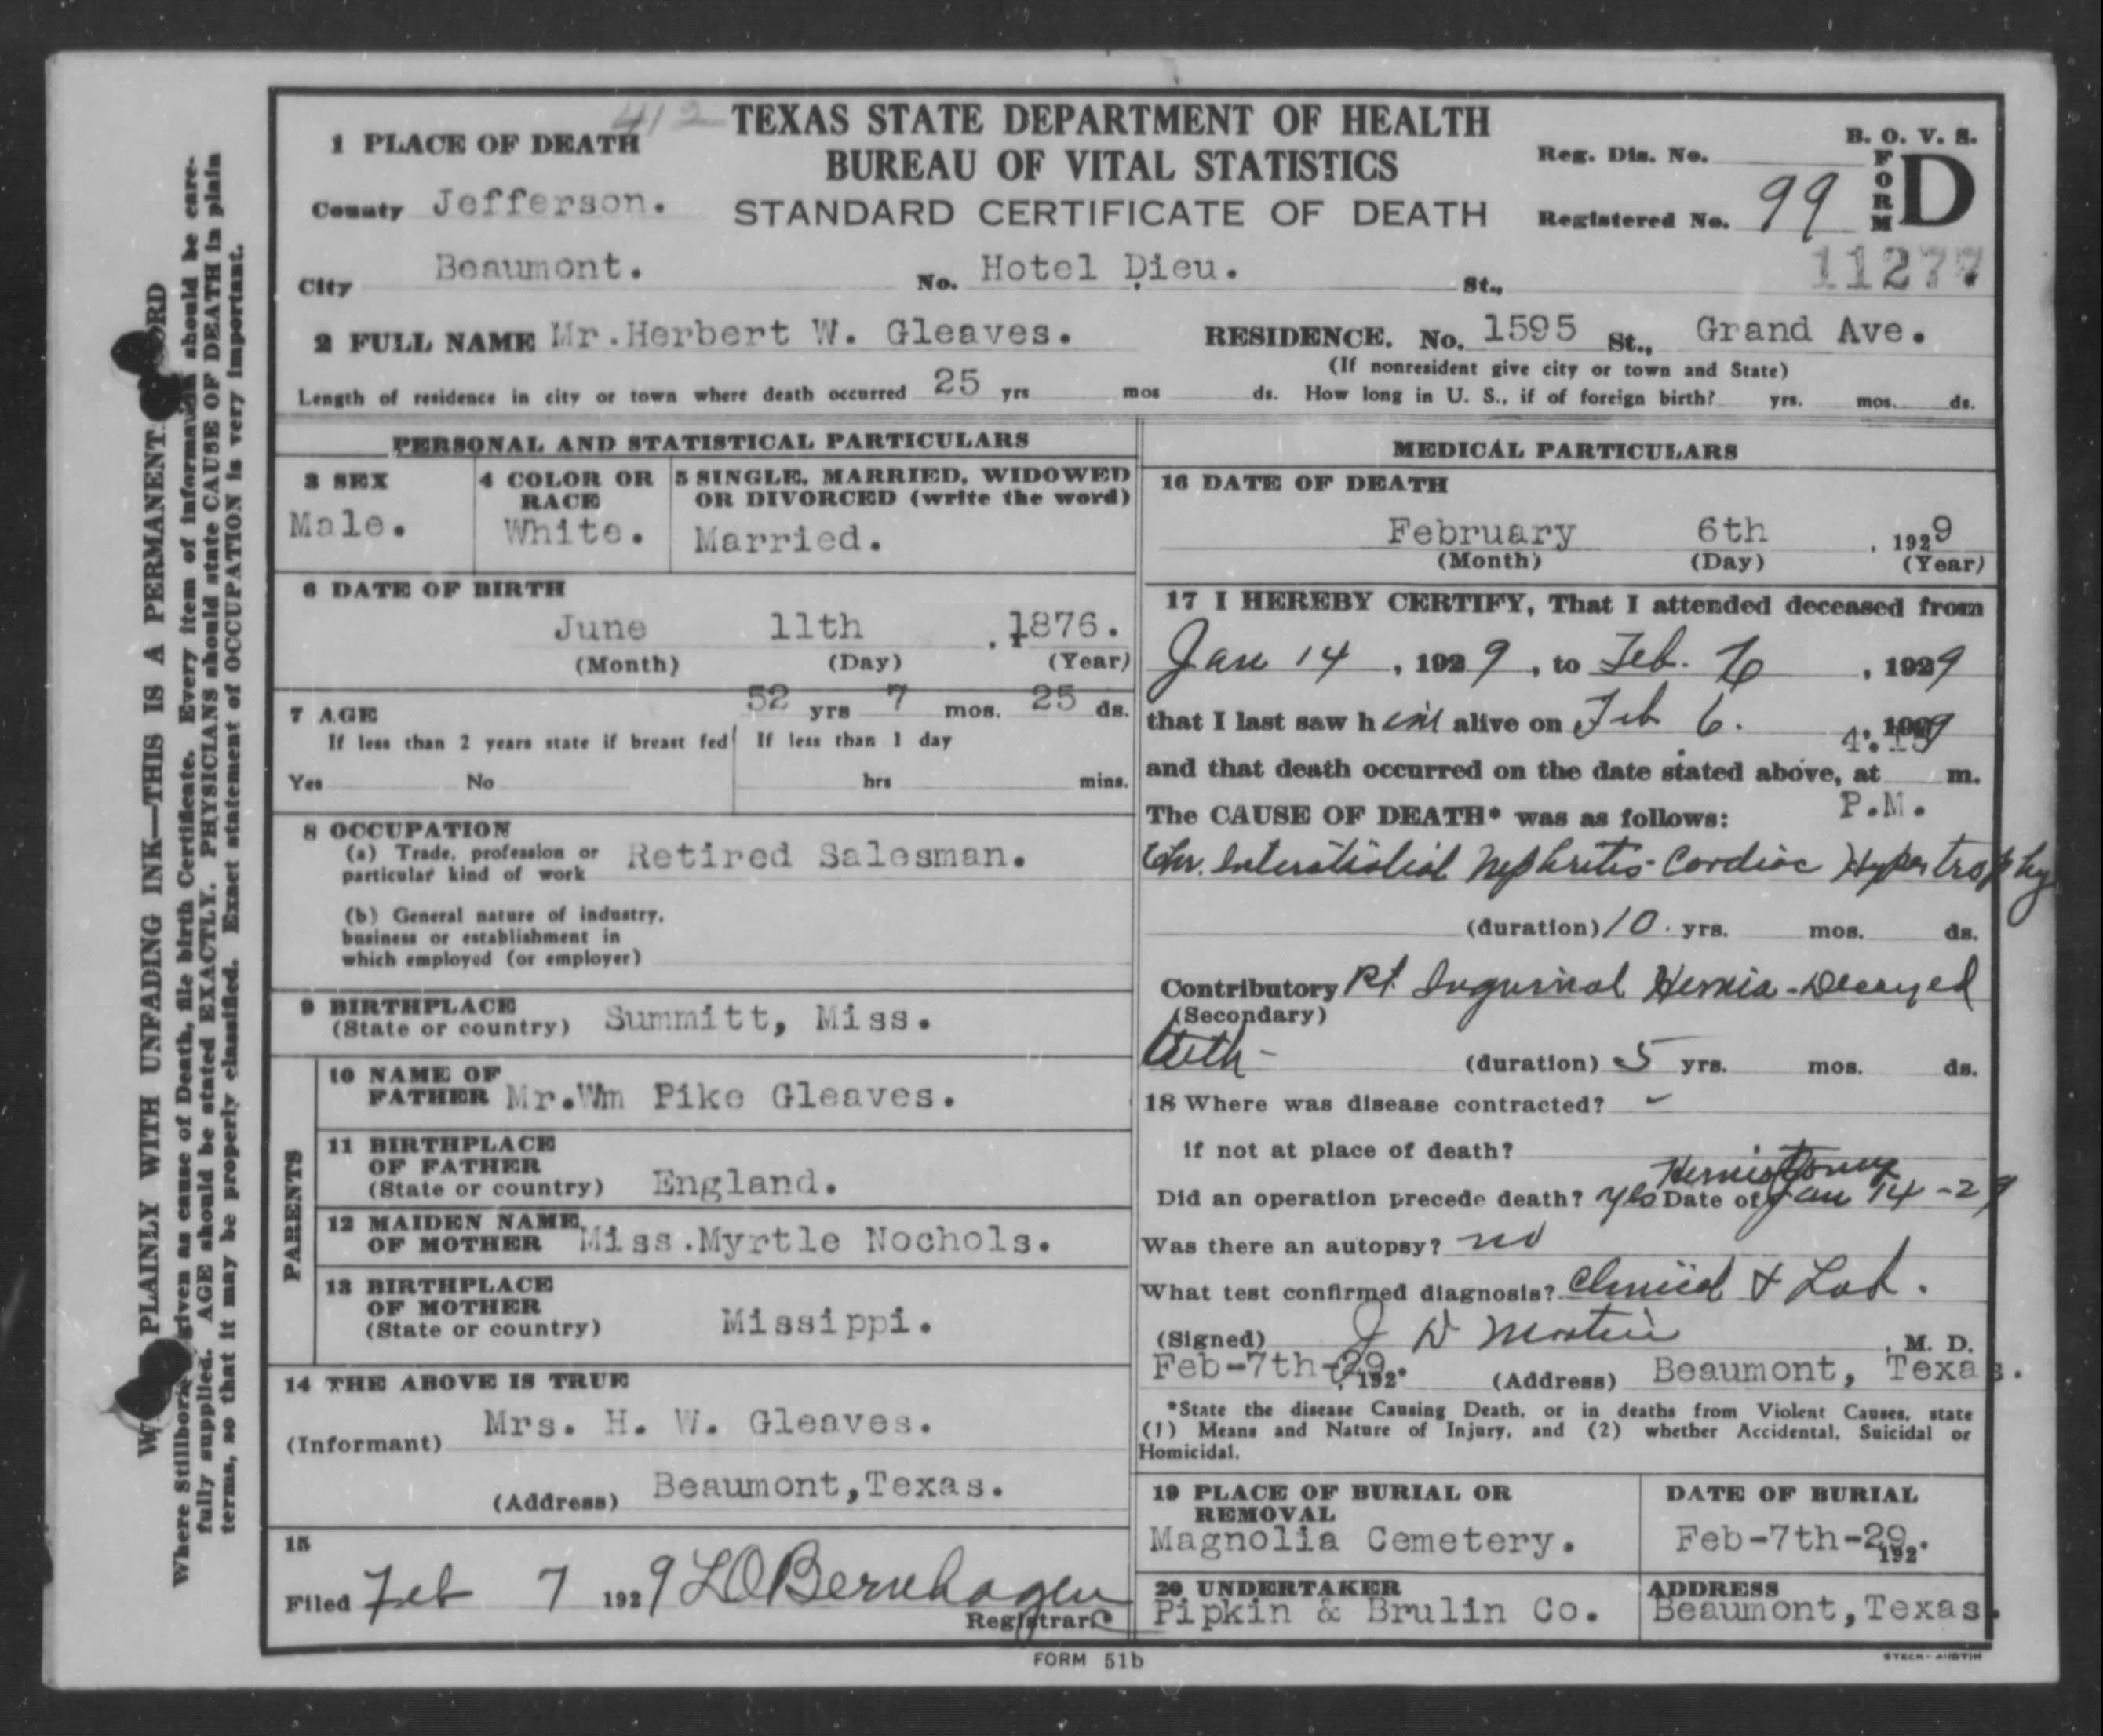 412
TEXAS STATE DEPARTMENT OF HEALTH
BUREAU OF VITAL STATISTICS
STANDARD CERTIFICATE OF DEATH
B. O. V. S.
FORM D
Reg. Dis. No.
Registered No. 99
11277
1 PLACE OF DEATH
County Jefferson.
City Beaumont. No. Hotel Dieu. St.,
2 FULL NAME Mr.Herbert W. Gleaves. RESIDENCE. No. 1595 St., Grand Ave.
(If nonresident give city or town and State)
Length of residence in city or town where death occurred 25 yrs mos ds. How long in U. S., if of foreign birth? yrs. mos. ds.
PERSONAL AND STATISTICAL PARTICULARS
3 SEX
Male.
4 COLOR OR RACE
White.
5 SINGLE, MARRIED, WIDOWED
OR DIVORCED (write the word)
Married.
6 DATE OF BIRTH
June 11th , 1876.
(Month) (Day) (Year)
7 AGE 52 yrs 7 mos. 25 ds.
If less than 2 years state if breast fed If less than 1 day
Yes No hrs mins.
8 OCCUPATION
(a) Trade, profession or
particular kind of work Retired Salesman.
(b) General nature of industry,
business or establishment in
which employed (or employer)
9 BIRTHPLACE
(State or country) Summitt, Miss.
PARENTS
10 NAME OF
FATHER Mr.Wm Pike Gleaves.
11 BIRTHPLACE
OF FATHER
(State or country) England.
12 MAIDEN NAME
OF MOTHER Miss.Myrtle Nochols.
13 BIRTHPLACE
OF MOTHER
(State or country) Missippi.
14 THE ABOVE IS TRUE
(Informant) Mrs. H. W. Gleaves.
(Address) Beaumont,Texas.
15
Filed Feb 7 1929 L O Bernhagen
Registrar
MEDICAL PARTICULARS
16 DATE OF DEATH
February 6th , 1929
(Month) (Day) (Year)
17 I HEREBY CERTIFY, That I attended deceased from
Jan 14 , 1929 , to Feb. 6 , 1929
that I last saw h im alive on Feb 6. , 1929
and that death occurred on the date stated above, at 4.15 m.
P.M.
The CAUSE OF DEATH* was as follows:
Chr. Interstistial Nephritis- Cardiac Hypertrophy
(duration) 10. yrs. mos. ds.
Contributory Rt Inguinal Hernia - Decayed
(Secondary)
teeth - (duration) 5 yrs. mos. ds.
18 Where was disease contracted?
if not at place of death?
Did an operation precede death? yes Date of Jan 14 - 29
Was there an autopsy? no
What test confirmed diagnosis? Clinical & Lab.
(Signed) J D Martin , M. D.
Feb-7th-29. , 192 (Address) Beaumont, Texas.
*State the disease Causing Death, or in deaths from Violent Causes, state
(1) Means and Nature of Injury, and (2) whether Accidental, Suicidal or
Homicidal.
19 PLACE OF BURIAL OR
REMOVAL
Magnolia Cemetery.
DATE OF BURIAL
Feb-7th-29. 192
20 UNDERTAKER
Pipkin & Brulin Co.
ADDRESS
Beaumont,Texas.
FORM 51b
STECK-AUSTIN
PLAINLY WITH UNFADING INK—THIS IS A PERMANENT
Where Stillborn given as cause of Death, file birth Certificate. Every item of information should be care-
fully supplied. AGE should be stated EXACTLY. PHYSICIANS should state CAUSE OF DEATH in plain
terms, so that it may be properly classified. Exact statement of OCCUPATION is very important.